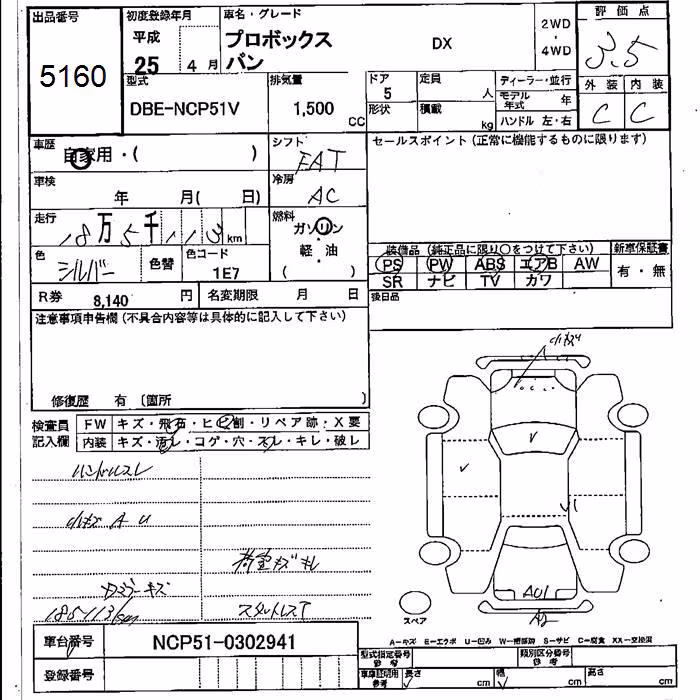 出品番号
5160
初度登録年月
平成
25 4 月
車名・グレード
プロボックス
バン
DX
2WD
・
4WD
評価点
3.5
型式
DBE-NCP51V
排気量
1,500 CC
ドア
5
形状
定員
人
積載
kg
ディーラー・並行
モデル
年式
年
ハンドル 左・右
外装 内装
C C
車歴
自家用・( )
シフト
FAT
セールスポイント (正常に機能するものに限ります)
車検
年 月( 日)
冷房
AC
走行
18万5千113km
燃料
ガソリン
軽・油
( )
色
シルバー
色替
色コード
1E7
装備品 (純正品に限り○をつけて下さい)
PS PW ABS エアB AW
SR ナビ TV カワ
新車保証書
有・無
R券 8,140 円
名変期限 月 日
後日品
注意事項申告欄 (不具合内容等は具体的に記入して下さい)
修復歴 有 (箇所 )
検査員
記入欄
FW キズ・飛石・ヒビ割・リペア跡・X要
内装 キズ・汚レ・コゲ・穴・スレ・キレ・破レ
ハンドルスレ
小キズ A U
荷室キズキレ
185113km
スタットレスT
小キズ
A U1
A2
スペア
A-キズ E-エクボ U-凹み W-補修跡 S-サビ C-腐食 XX-交換済
車台番号
NCP51-0302941
登録番号
型式指定番号
参考
類別区分番号
参考
車庫証明用
参考
長さ cm
幅 cm
高さ cm